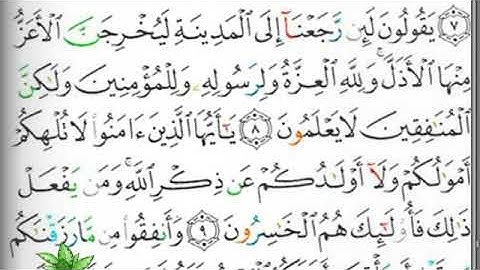 ٧ يَقُولُونَ لَئِن رَّجَعْنَآ إِلَى ٱلْمَدِينَةِ لَيُخْرِجَنَّ ٱلْأَعَزُّ
مِنْهَا ٱلْأَذَلَّ ۚ وَلِلَّهِ ٱلْعِزَّةُ وَلِرَسُولِهِۦ وَلِلْمُؤْمِنِينَ وَلَٰكِنَّ
ٱلْمُنَٰفِقِينَ لَا يَعْلَمُونَ ٨ يَٰٓأَيُّهَا ٱلَّذِينَ ءَامَنُوا۟ لَا تُلْهِكُمْ
أَمْوَٰلُكُمْ وَلَآ أَوْلَٰدُكُمْ عَن ذِكْرِ ٱللَّهِ ۚ وَمَن يَفْعَلْ
ذَٰلِكَ فَأُو۟لَٰٓئِكَ هُمُ ٱلْخَٰسِرُونَ ٩ وَأَنفِقُوا۟ مِن مَّا رَزَقْنَٰكُم